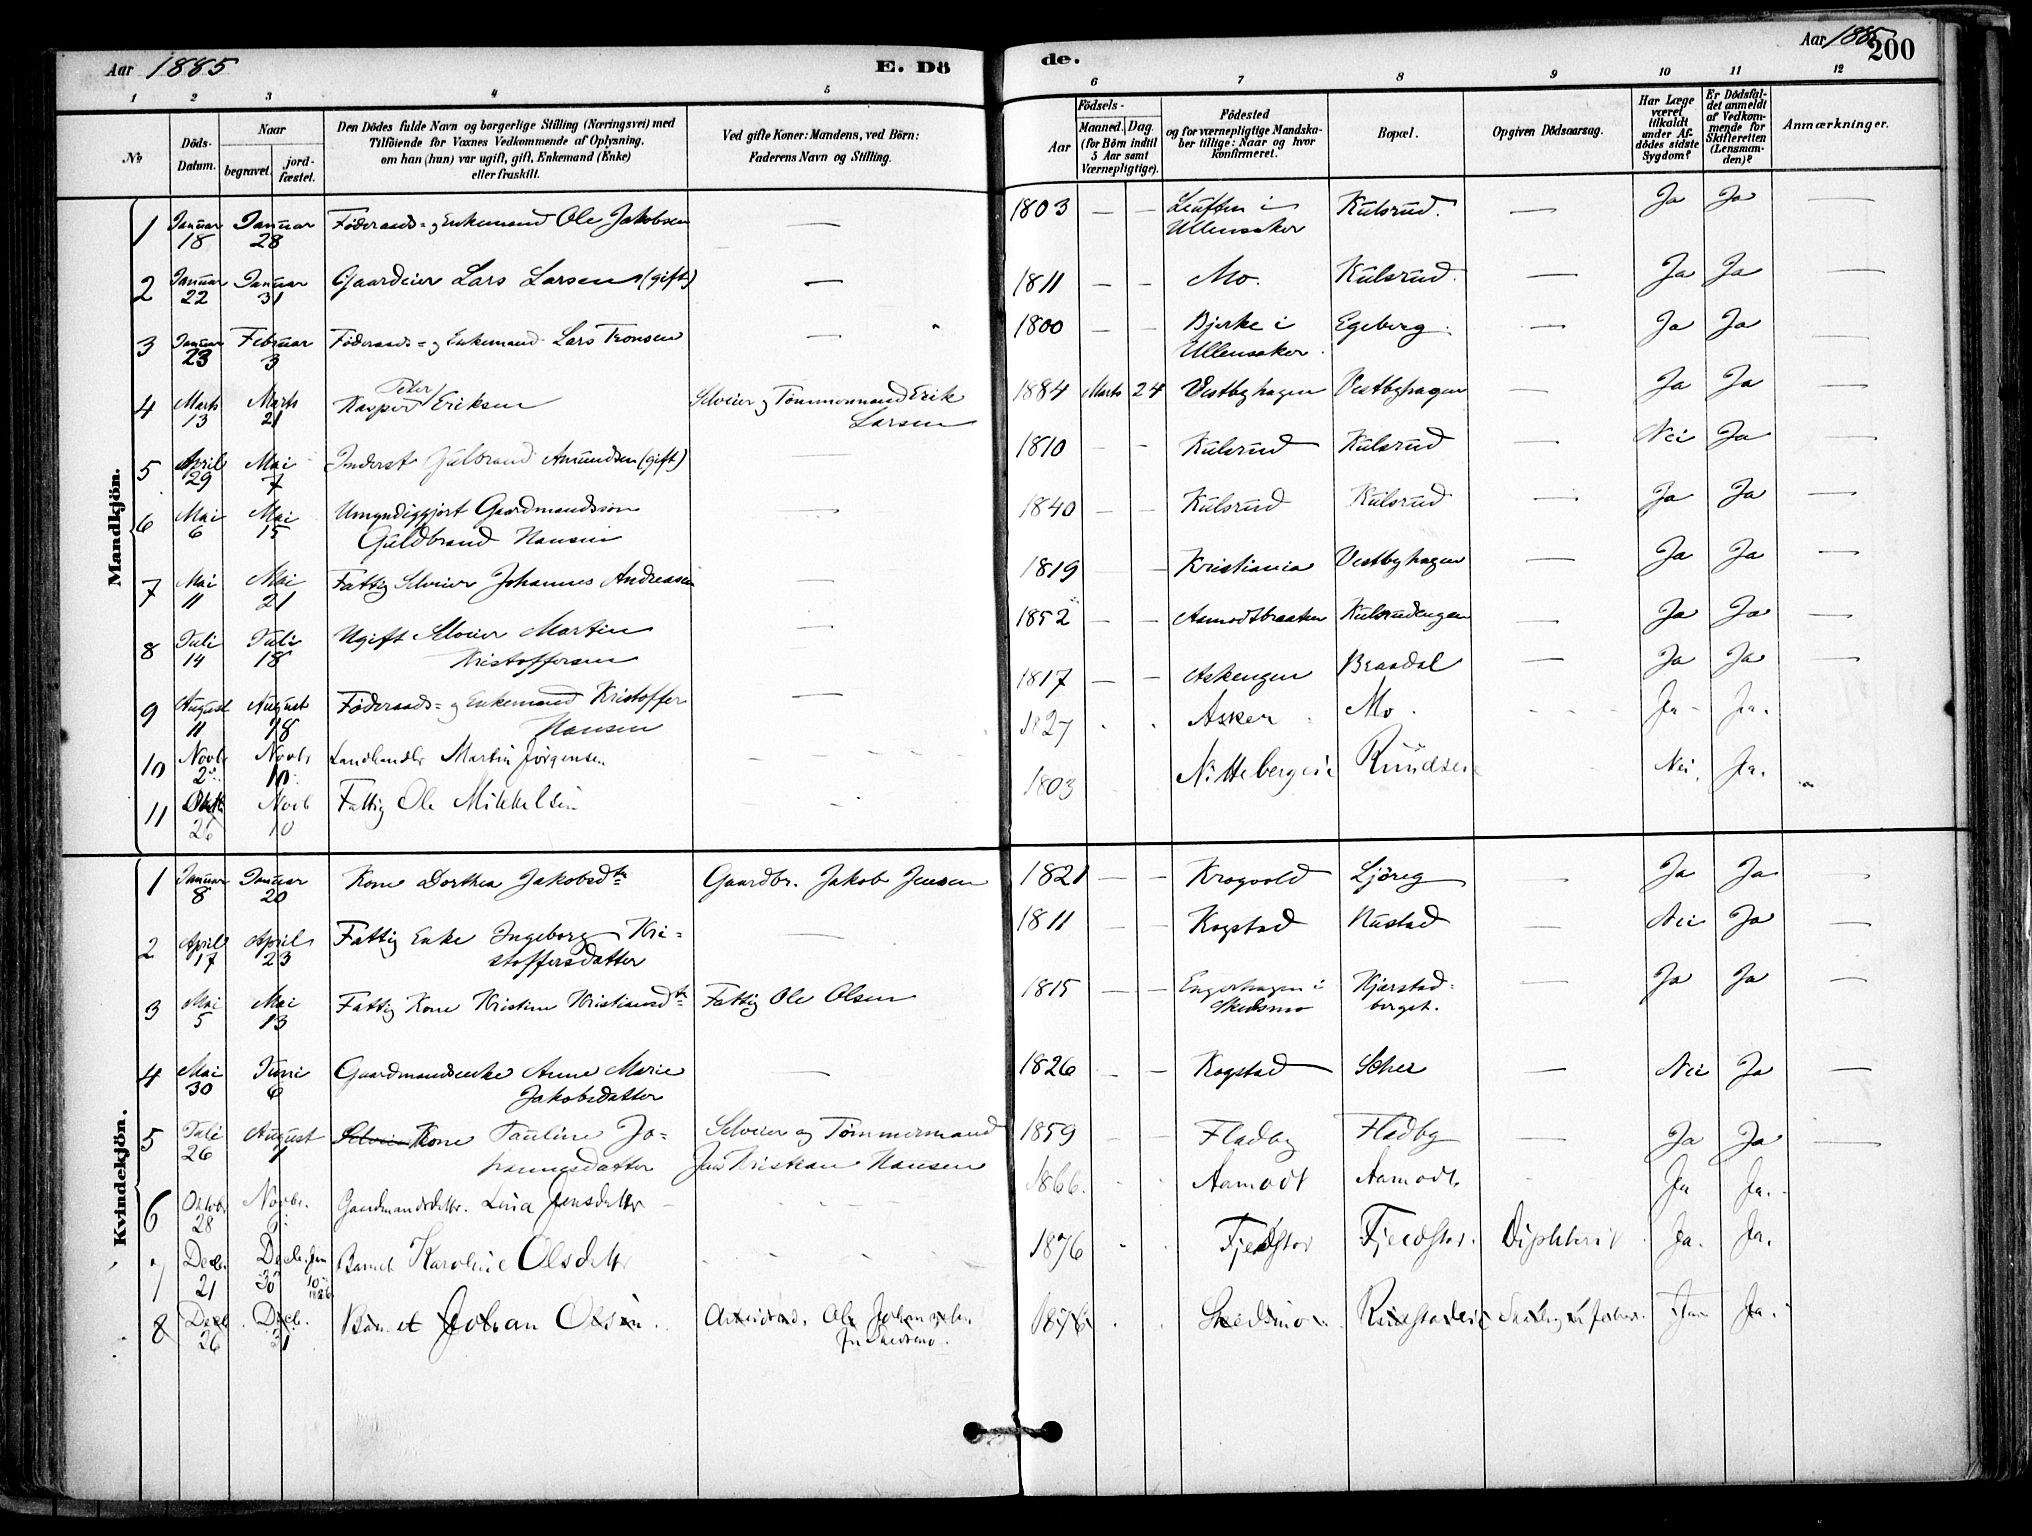 Aar 1885
E. Dö
de.
Aar 1885
200
1 2 3 4 5 6 7 8 9 10 11 12
No
Döds-Datum.
Naar
begravet.
jord-fæstet.
Den Dödes fulde Navn og borgerlige Stilling (Næringsvei) med
Tilföiende for Voxnes Vedkommende af Oplysning,
om han (hun) var ugift, gift, Enkemand (Enke)
eller fraskilt.
Ved gifte Koner: Mandens, ved Börn:
Faderens Navn og Stilling.
Födsels-
Aar
Maaned. Dag.
(for Börn indtil
5 Aar samt
Værnepligtige).
Födested
og for værnepligtige Mandska-
ber tillige: Naar og hvor
konfirmeret.
Bopæl.
Opgiven Dödsaarsag.
Har Læge
været
tilkaldt
under Af-
dödes sidste
Sygdom?
Er Dödsfal-
det anmeldt
af Vedkom-
mende for
Skifteretten
(Lensman-
den)?
Anmærkninger.
Mandkjön.
1 Januar 18 Januar 28 Föderaads- og Enkemand Ole Jakobsen — 1803 — — Leuften i Ullensaker Kulsrud. — Ja Ja —
2 Januar 22 Januar 31 Gaardeier Lars Larsen (gift) — 1811 — — Mo. Kulsrud. — Ja Ja —
3 Januar 23 Februar 3 Föderaads- og Enkemand Lars Tronsen — 1800 — — Bjerke i Ullensaker. Egeberg. — Ja Ja —
4 Marts 13 Marts 21 Kasper Peter Eriksen Selveier og Tømmermand Erik Larsen 1884 Marts 24 Vestbyhagen Vestbyhagen — Ja Ja —
5 April 29 Mai 7 Inderst Gulbrand Amundsen (gift) — 1810 — — Kulsrud Kulsrud — Nei Ja —
6 Mai 6 Mai 15 Umyndiggjort Gaardmandssøn Guldbrand Hansen — 1840 — — Kulsrud Kulsrud — Ja Ja —
7 Mai 11 Mai 21 Fattig Selveier Johannes Andreasen — 1819 — — Kristiania Vestbyhagen — Ja Ja —
8 Juli 14 Juli 18 Ugift Selveier Martin Kristoffersen — 1852 — — Aamodtbraaten Kulsrudengen — Ja Ja —
9 August 11 August 18 Föderaads- og Enkemand Kristoffer Hansen — 1817 — — Askengen Braadal — Ja Ja
10 Novb. 2 Novb. 10 Landhandler Martin Jörgensen 1827 Asker Mo. Ja Ja.
11 Oktb 26 Novb 10 Fattig Ole Mikkelsen 1803 Nittebergeie Nei. Ja.
Kvindekjön.
1 Januar 8 Januar 20 Kone Dorthea Jakobsdtr Gaardbr. Jakob Jensen 1821 — — Krogvold Ljöreg — Ja Ja —
2 April 17 April 23 Fattig Enke Ingeborg Kri-
stoffersdatter — 1811 — — Kogstad Nustad — Nei Ja —
3 Mai 5 Mai 13 Fattig Kone Kristine Kristiansdtr Fattig Ole Olsen 1815 — — Engerhagen i Skedsmo Kjærstad-
berget. — Ja Ja —
4 Mai 30 Juni 6 Gaardmandsenke Anne Marie
Jakobsdatter — 1826 — — Kogstad — Nei Ja —
5 Juli 26 August 1 Selveier Kone Pauline Jo-
hannesdatter Selveier og Tømmermand
Jens Kristian Hansen 1859 — — Fladby Fladby — Ja Ja —
6 Oktobr 28 Novbr. Gaardmandsdattr. Lina Jensdattr 1866. Aamodt Aamodt Ja Ja.
7 Decb. 21 Decb. 30 Jan 10 1886 Barnet Karoline Olsdattr 1876 Fjeldstor Fjeldstor. Diphterit Ja. Ja.
8 Decb 26 Decb. 31 Barnet Johan Olsen. Arbeidsmd. Ole Johansen
fra Skedsmo. 1876 Skedsmo Ja.